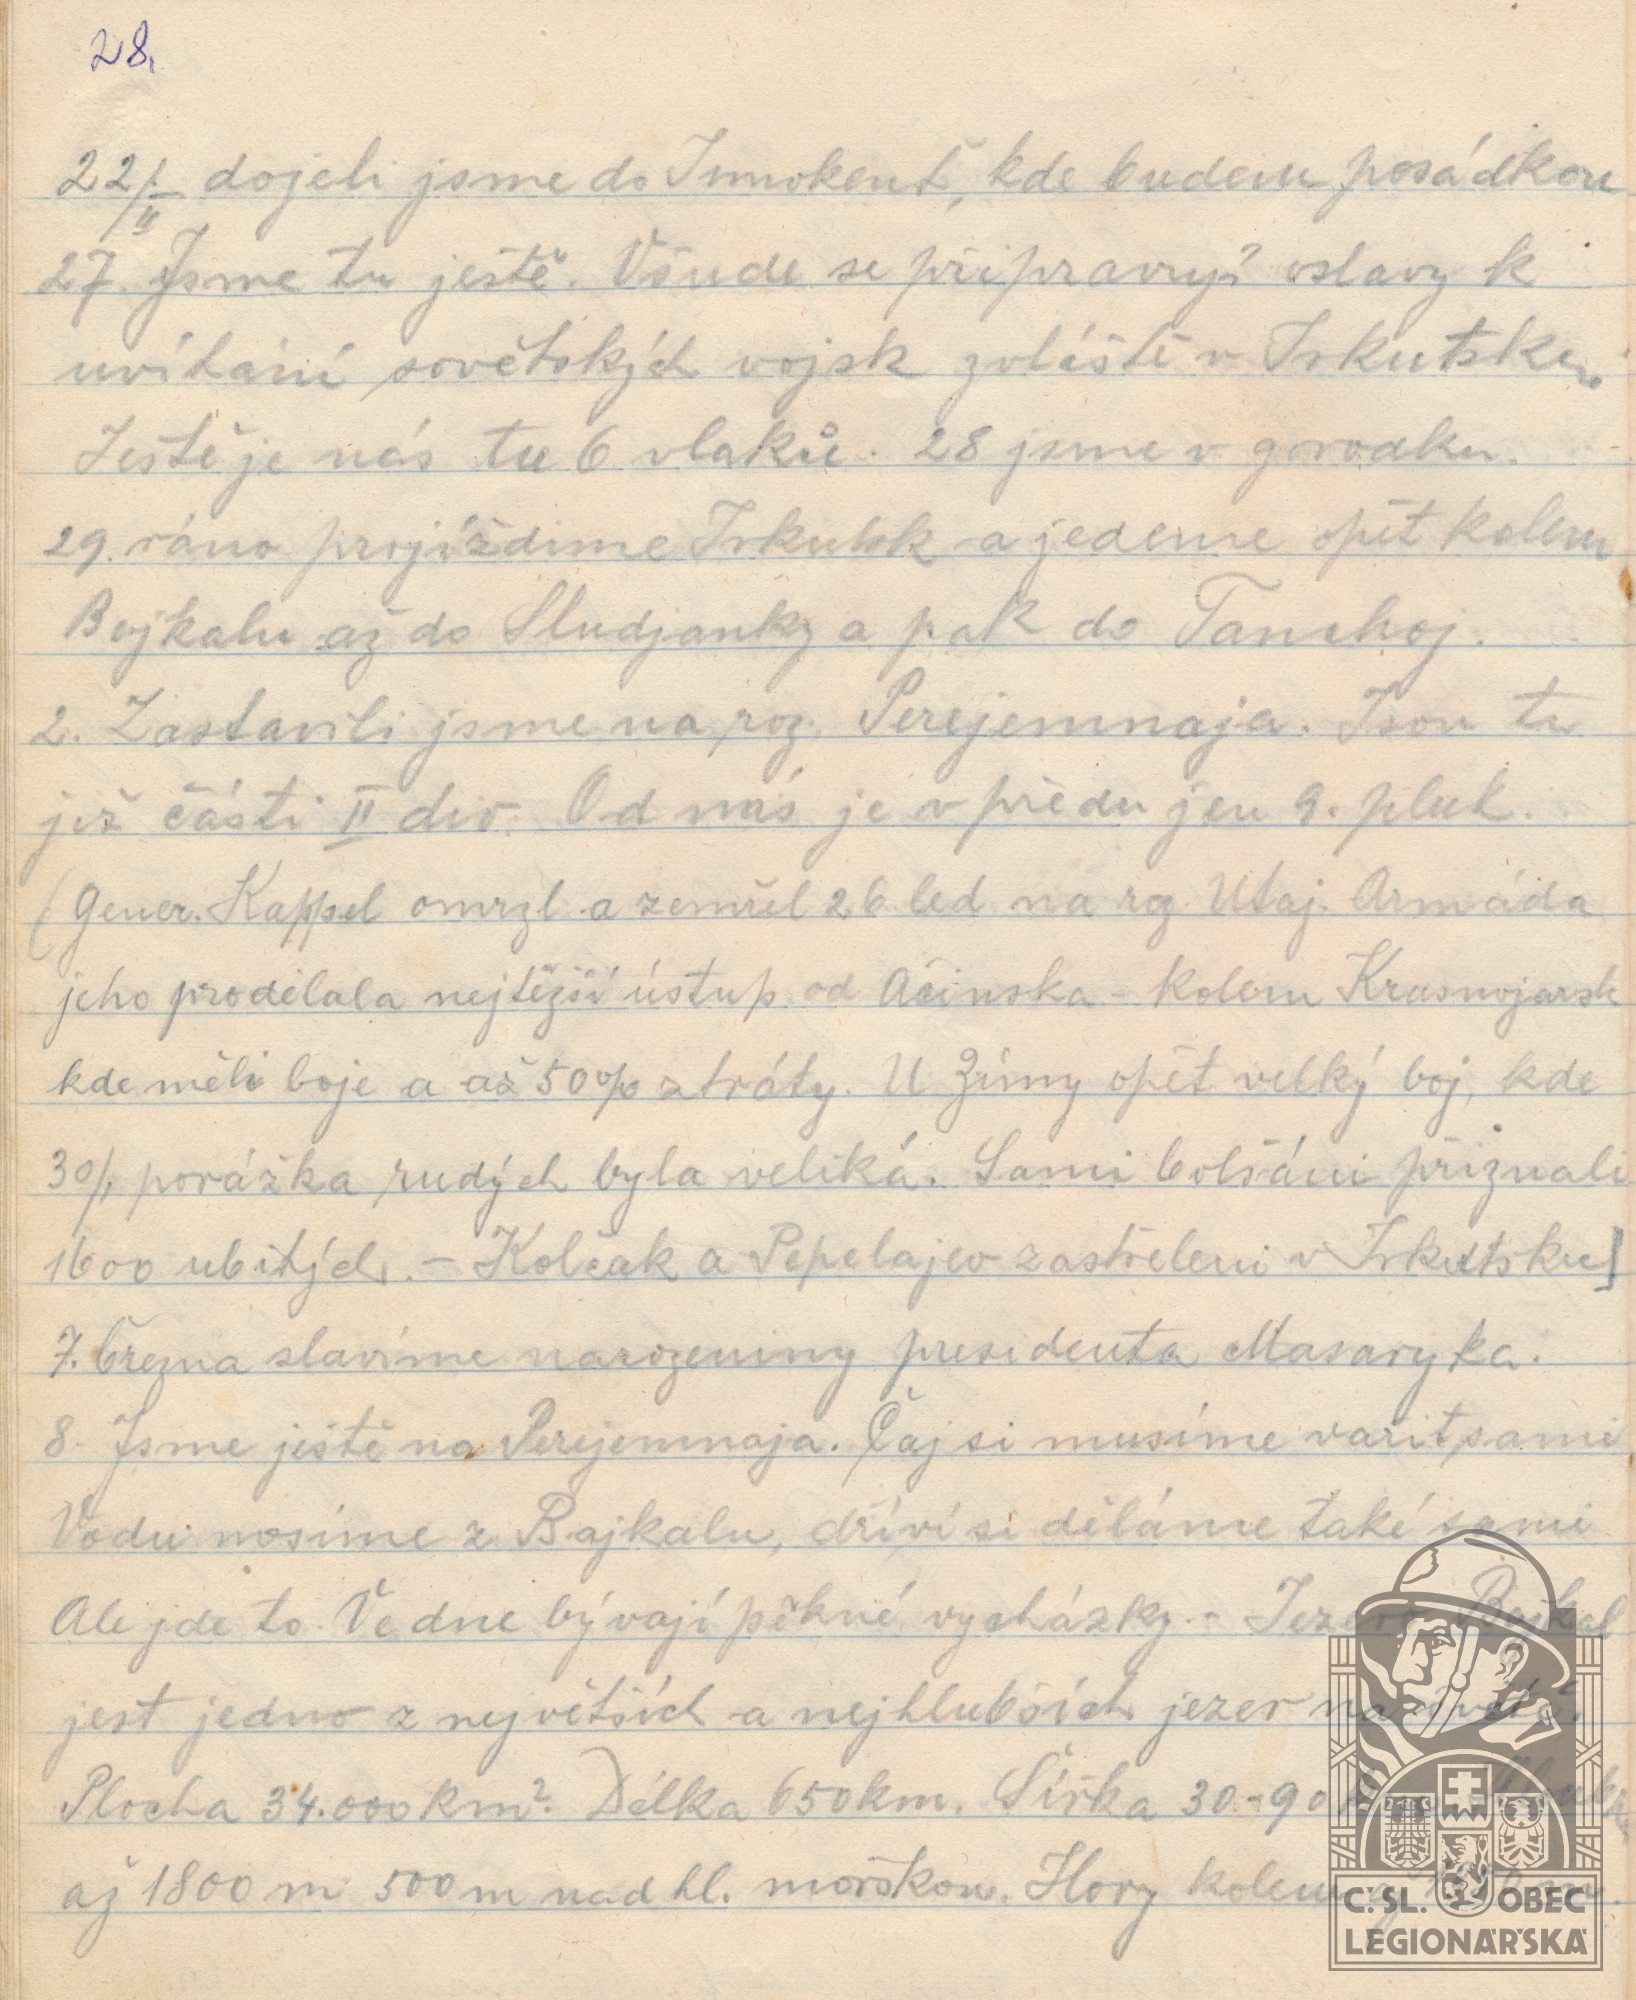 28.
22/II dojeli jsme do Innokent, kde budem posádkou
27. Jsme tu ještě. Všude se připravují oslavy k
uvítání sovětských vojsk zvláště v Irkutsku.
Ještě je nás tu 6 vlaků. 28 jsme v gorodku.
29. ráno projíždíme Irkutsk a jedeme opět kolem
Bajkalu až do Sludjanky a pak do Tanchoj.
2. Zastavili jsme na roz. Perejemnaja. Jsou tu
již části II div. Od nás je v předu jen 9. pluk.
(Gener. Kappel omrzl a zemřel 26 led na roz. Utaj. Armáda
jeho prodělala nejtěžší ústup od Ačinska - kolem Krasnojarsk
kde měli boje a až 50% ztráty. U Zimy opět velký boj, kde
30/1 porážka rudých byla veliká. Sami bolšáni přiznali
1600 ubitých. - Kolčak a Pepelajev zastřeleni v Irkutsku]
7. března slavíme narozeniny presidenta Masaryka.
8. Jsme ještě na Perejemnaja. Čaj si musíme vařit sami
Vodu nosíme z Bajkalu, dříví si děláme také sami
Ale jde to. Ve dne bývají pěkné vycházky. - Jezero Bajkal
jest jedno z největších a nejhlubších jezer na světě.
Plocha 34.000 km². Délka 650 km. Šířka 30-90
až 1800 m 500 m nad hl. mořskou. Hory kolem
Č. SL. OBEC
LEGIONÁŘSKÁ